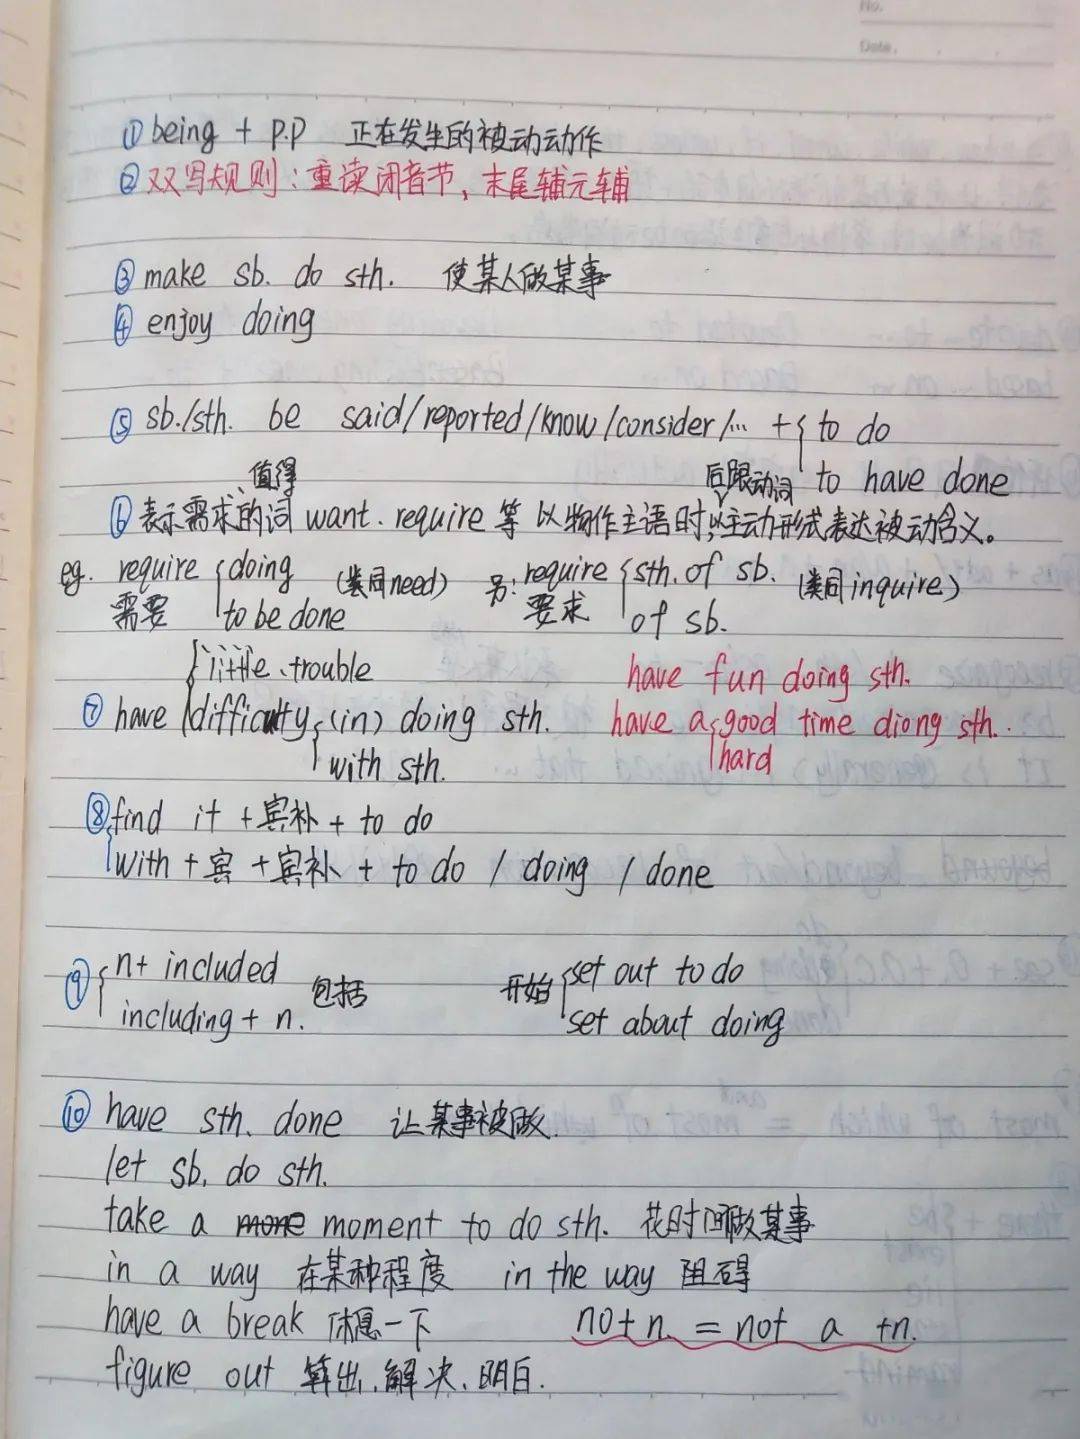 No.
Date.
① being + p.p 正在发生的被动动作
② 双写规则：重读闭音节，末尾辅元辅
③ make sb. do sth. 使某人做某事
④ enjoy doing
⑤ sb./sth. be said/reported/know/consider/... + { to do
to have done
值得 后跟动词
⑥ 表示需求、的词 want、require 等 以物作主语时，以主动形式表达被动含义。
eg. require { doing (类同need) 另: require { sth. of sb. (类同inquire)
需要 to be done 要求 of sb.
{ little、trouble have fun doing sth.
⑦ have difficulty { (in) doing sth. have a { good time diong sth.
with sth. hard
⑧ { find it +宾补 + to do
with + 宾 + 宾补 + to do / doing / done
⑨ { n+ included 包括 开始 { set out to do
including + n. set about doing
⑩ have sth. done 让某事被做.
let sb. do sth.
take a more moment to do sth. 花时间做某事
in a way 在某种程度 in the way 阻碍
have a break 休息一下 no+n. = not a +n.
figure out 算出、解决、明白.